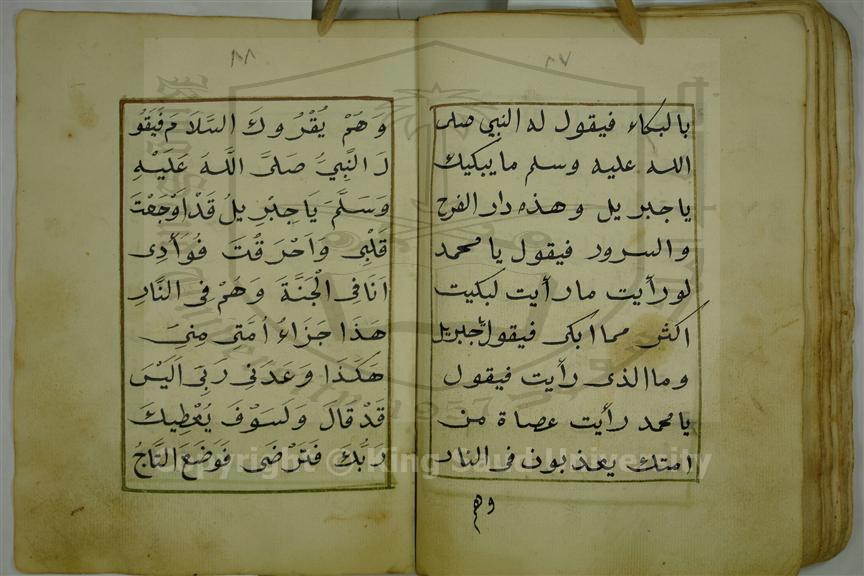 ٨٧
بالبكاء فيقول له النبي صلى
الله عليه وسلم ما يبكيك
يا جبريل وهذه دار الفرح
والسرور فيقول يا محمد
لو رأيت ما رأيت لبكيت
اكثر مما ابكى فيقول يا جبريل
وما الذى رأيت فيقول
يا محمد رأيت عصاة من
امتك يعذبون فى النار
وهم
٨٨
وَهُمْ يُقْرُوكَ السَّلَامَ فَيَقُو
لَ النَّبِىُّ صَلَّى اللَّهُ عَلَيْهِ
وَسَلَّمَ يَا جِبْرِيلُ قَدْ اَوْجَعْتَ
قَلْبِى وَاَحْرَقْتَ فُوَأدِى
اَنَا فِى الْجَنَّةَ وَهُمْ فِى النَّارِ
هَذَا جَزَاءُ اُمَّتِى مِنِّى
هَكَذَا وَعَدَنِى رَبِّى اَلَيْسَ
قَدْ قَالَ وَلَسَوْفَ يُعْطِيكَ
رَبُّكَ فَتَرْضَى فَوَضَعَ التَّاجُ
Copyright © King Saud University